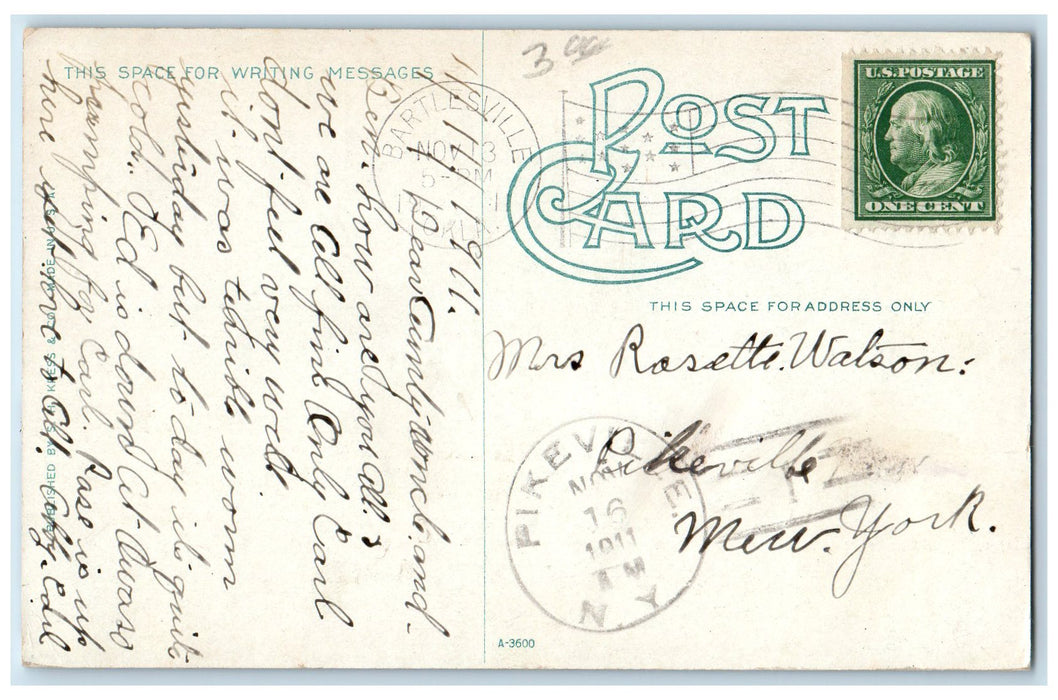 THIS SPACE FOR WRITING MESSAGES
11/11/1911.
Dear Aunty, Uncle, and
Bem. how are you all?
we are all fine Only Earl
dont feel very well
it was terrible worm
yustuday but to day is quite
cold. Ed is down at
for Earl. Rose is up
here yet. love to all.
PUBLISHED BY S. H. KRESS & CO.
3 00
BARTLESVILLE
NOV 13
5-PM
OKLA.
POST CARD
U.S. POSTAGE
ONE CENT
THIS SPACE FOR ADDRESS ONLY
Mrs Rosette. Watson:
Pikeville
New. York.
PIKEVILLE
NOV
16
1911
AM
N.Y.
A-3600